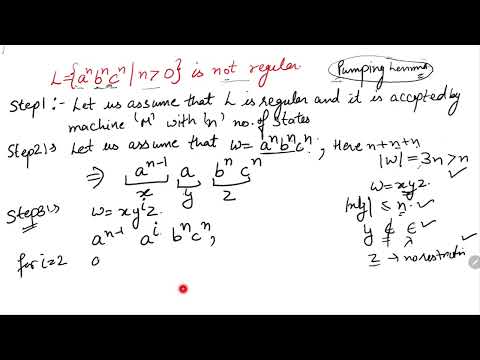 L={aⁿbⁿcⁿ | n>0} is not regular. Pumping Lemma
Step1 :- Let us assume that L is regular and it is accepted by
machine 'M' with 'n' no. of states
Step2) :> Let us assume that w= aⁿbⁿcⁿ, Here n+n+n
|w|=3n>n
⇒ aⁿ⁻¹ a bⁿ cⁿ
x y z
w=xyz. ✓
|xy| ≤ n. ✓
Step3 :> w= xyⁱz.
y ∉ ϵ ✓
= λ
aⁿ⁻¹ aⁱ bⁿcⁿ,
z → no
for i=2